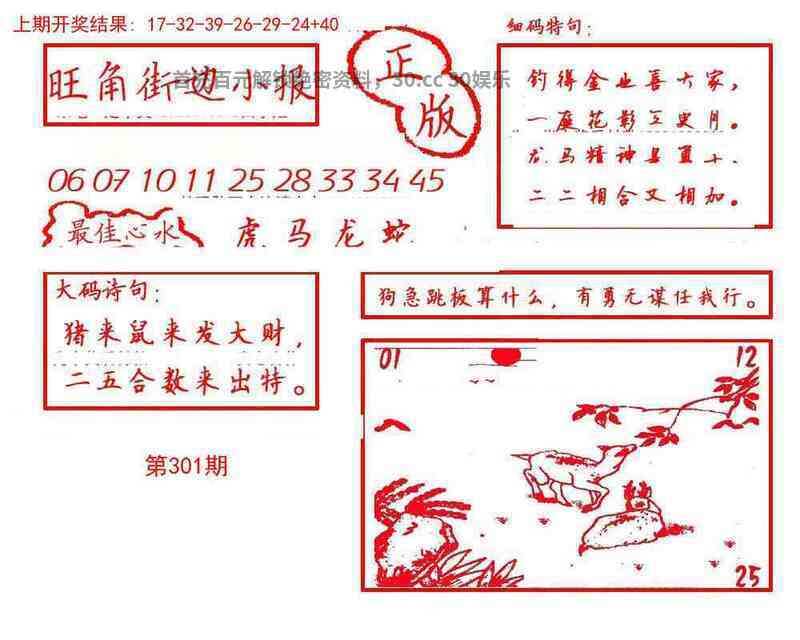 上期开奖结果: 17-32-39-26-29-24+40
细码特句:
旺角街边小报
正版
首批百元解锁绝密资料，30.cc 30娱乐
钓得金业喜大家，
一庭花影三更月。
龙马精神
二二相合又相加。
06 07 10 11 25 28 33 34 45
最佳心水
虎马龙蛇
大码诗句:
猪来鼠来发大财，
二五合数来出特。
狗急跳板算什么，有勇无谋任我行。
01
12
25
第301期